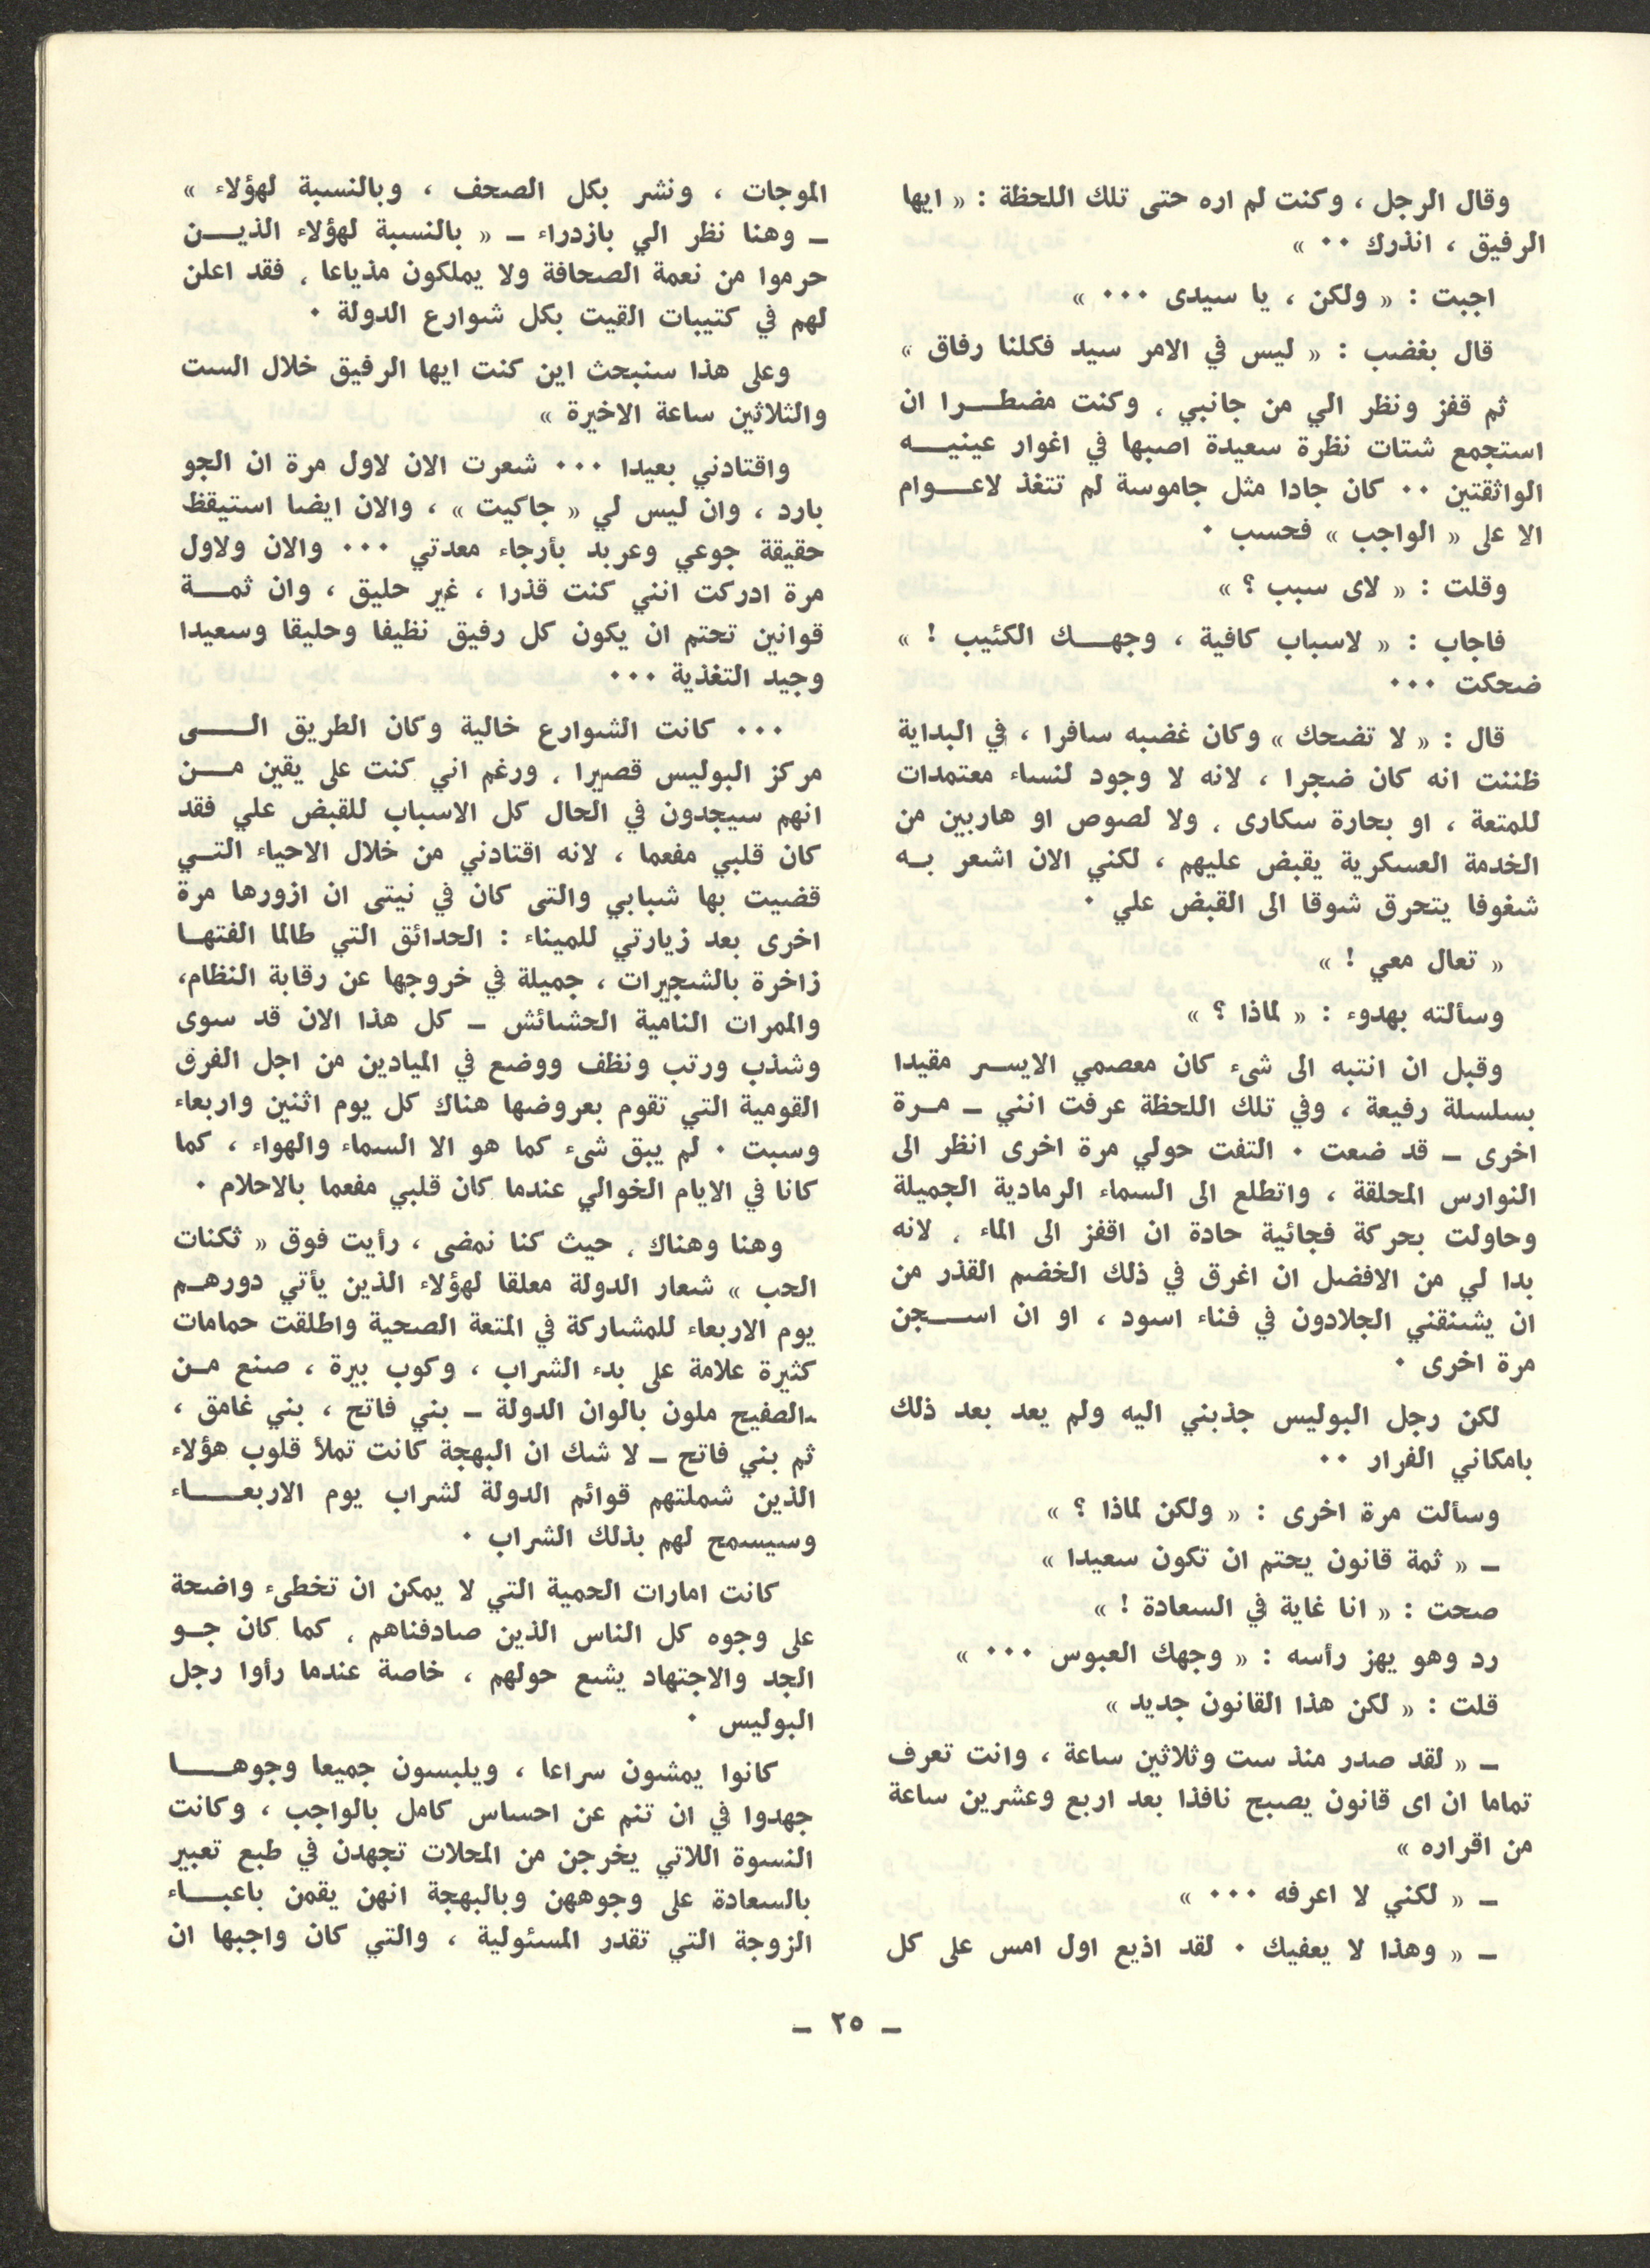 وقال الرجل ، وكنت لم اره حتى تلك اللحظة : « ايها
الرفيق ، انذرك ٠٠ »
اجبت : « ولكن ، يا سيدى ٠٠٠ »
قال بغضب : « ليس في الامر سيد فكلنا رفاق »
ثم قفز ونظر الي من جانبي ، وكنت مضطرا ان
استجمع شتات نظرة سعيدة اصبها في اغوار عينيه
الواثقتين ٠٠ كان جادا مثل جاموسة لم تتغذ لاعوام
الا على « الواجب » فحسب ٠
وقلت : « لاى سبب ؟ »
فاجاب : « لاسباب كافية ، وجهك الكئيب ! »
ضحكت ٠٠٠
قال : « لا تضحك » وكان غضبه سافرا ، في البداية
ظننت انه كان ضجرا ، لانه لا وجود لنساء معتمدات
للمتعة ، او بحارة سكارى ، ولا لصوص او هاربين من
الخدمة العسكرية يقبض عليهم ، لكني الان اشعر به
شغوفا يتحرق شوقا الى القبض علي ٠
« تعال معي ! »
وسألته بهدوء : « لماذا ؟ »
وقبل ان انتبه الى شىء كان معصمي الايسر مقيدا
بسلسلة رفيعة ، وفي تلك اللحظة عرفت انني ـ مرة
اخرى ـ قد ضعت ٠ التفت حولي مرة اخرى انظر الى
النوارس المحلقة ، واتطلع الى السماء الرمادية الجميلة
وحاولت بحركة فجائية حادة ان اقفز الى الماء ، لانه
بدا لي من الافضل ان اغرق في ذلك الخضم القذر من
ان يشنقني الجلادون في فناء اسود ، او ان اسجن
مرة اخرى ٠
لكن رجل البوليس جذبني اليه ولم يعد بعد ذلك
بامكاني الفرار ٠٠
وسألت مرة اخرى : « ولكن لماذا ؟ »
ـ « ثمة قانون يحتم ان تكون سعيدا »
صحت : « انا غاية في السعادة ! »
رد وهو يهز رأسه : « وجهك العبوس ٠٠٠ »
قلت : « لكن هذا القانون جديد »
ـ « لقد صدر منذ ست وثلاثين ساعة ، وانت تعرف
تماما ان اى قانون يصبح نافذا بعد اربع وعشرين ساعة
من اقراره »
ـ « لكني لا اعرفه ٠٠٠ »
ـ « وهذا لا يعفيك ٠ لقد اذيع اول امس على كل
الموجات ، ونشر بكل الصحف ، وبالنسبة لهؤلاء »
ـ وهنا نظر الي بازدراء ـ « بالنسبة لهؤلاء الذين
حرموا من نعمة الصحافة ولا يملكون مذياعا ، فقد اعلن
لهم في كتيبات القيت بكل شوارع الدولة ٠
وعلى هذا سنبحث اين كنت ايها الرفيق خلال الست
والثلاثين ساعة الاخيرة »
واقتادني بعيدا ٠٠٠ شعرت الان لاول مرة ان الجو
بارد ، وان ليس لي « جاكيت » ، والان ايضا استيقظ
حقيقة جوعي وعربد بأرجاء معدتي ٠٠٠ والان ولاول
مرة ادركت انني كنت قذرا ، غير حليق ، وان ثمة
قوانين تحتم ان يكون كل رفيق نظيفا وحليقا وسعيدا
وجيد التغذية ٠٠٠
٠٠٠ كانت الشوارع خالية وكان الطريق الى
مركز البوليس قصيرا ، ورغم اني كنت على يقين من
انهم سيجدون في الحال كل الاسباب للقبض علي فقد
كان قلبي مفعما ، لانه اقتادني من خلال الاحياء التي
قضيت بها شبابي والتى كان في نيتى ان ازورها مرة
اخرى بعد زيارتي للميناء : الحدائق التي طالما الفتها
زاخرة بالشجيرات ، جميلة في خروجها عن رقابة النظام،
والممرات النامية الحشائش ـ كل هذا الان قد سوى
وشذب ورتب ونظف ووضع في الميادين من اجل الفرق
القومية التي تقوم بعروضها هناك كل يوم اثنين واربعاء
وسبت ٠ لم يبق شىء كما هو الا السماء والهواء ، كما
كانا في الايام الخوالي عندما كان قلبي مفعما بالاحلام ٠
وهنا وهناك ، حيث كنا نمضى ، رأيت فوق « ثكنات
الحب » شعار الدولة معلقا لهؤلاء الذين يأتي دورهم
يوم الاربعاء للمشاركة في المتعة الصحية واطلقت حمامات
كثيرة علامة على بدء الشراب ، وكوب بيرة ، صنع من
الصفيح ملون بالوان الدولة ـ بني فاتح ، بني غامق ،
ثم بني فاتح ـ لا شك ان البهجة كانت تملأ قلوب هؤلاء
الذين شملتهم قوائم الدولة لشراب يوم الاربعاء
وسيسمح لهم بذلك الشراب ٠
كانت امارات الحمية التي لا يمكن ان تخطىء واضحة
على وجوه كل الناس الذين صادفناهم ، كما كان جو
الجد والاجتهاد يشع حولهم ، خاصة عندما رأوا رجل
البوليس ٠
كانوا يمشون سراعا ، ويلبسون جميعا وجوها
جهدوا في ان تنم عن احساس كامل بالواجب ، وكانت
النسوة اللاتي يخرجن من المحلات تجهدن في طبع تعبير
بالسعادة على وجوههن وبالبهجة انهن يقمن باعباء
الزوجة التي تقدر المسئولية ، والتي كان واجبها ان
ـ ٢٥ ـ